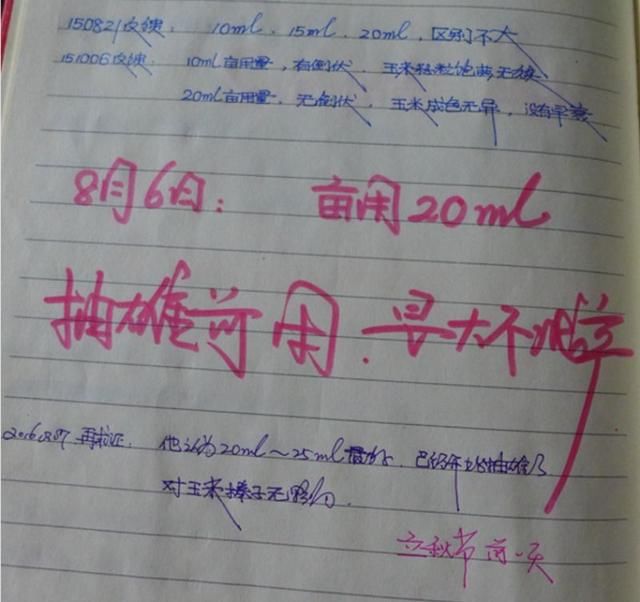 150821反馈: 10ml, 15ml, 20ml, 区别不大
151006反馈: 10ml亩用量, 有倒伏, 玉米粒饱满无
20ml亩用量, 无倒伏, 玉米成色无异, 没有早衰
8月6日: 亩用20ml
抽雄前用.旱大不
20160807 再 : 他认为20ml~25ml最好.
对玉米棒子无影响.
立秋节前一天